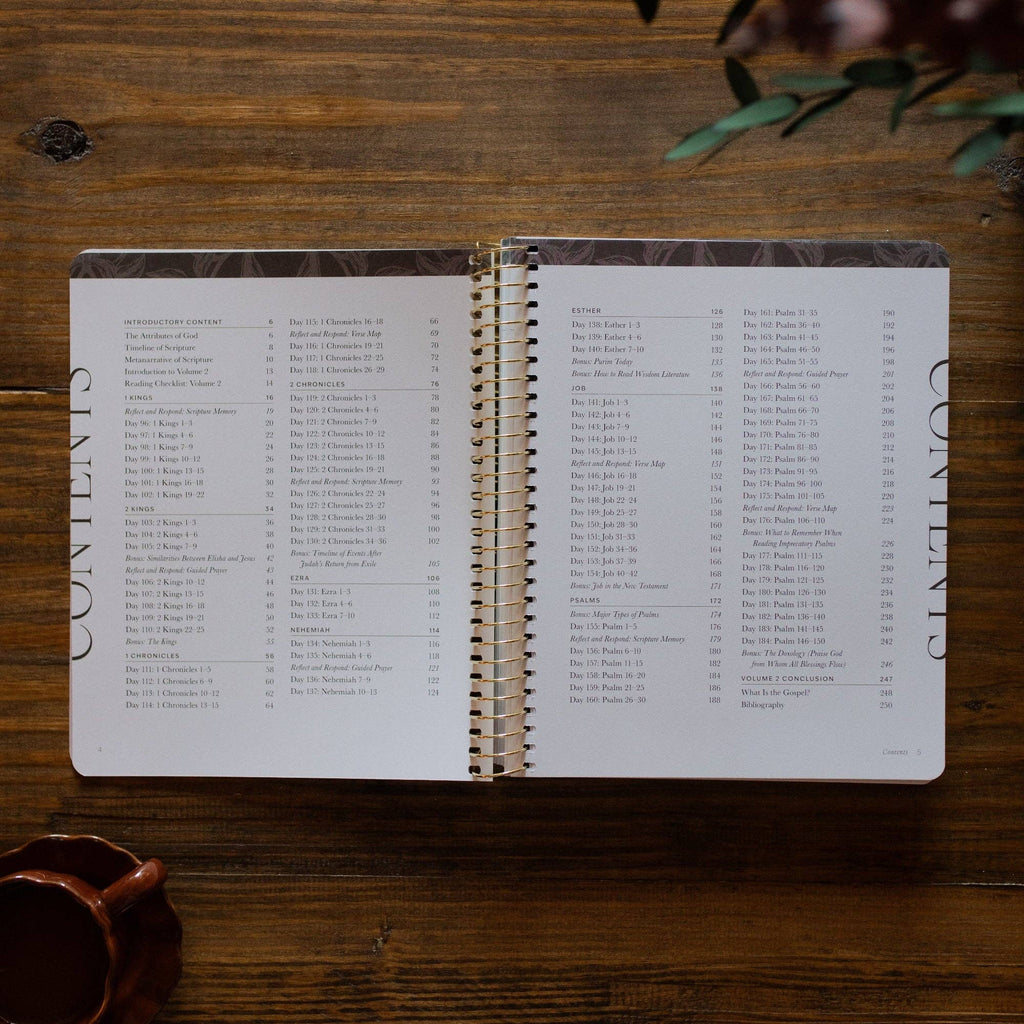 CONTENTS
INTRODUCTORY CONTENT 6
The Attributes of God 6
Timeline of Scripture 8
Metanarrative of Scripture 10
Introduction to Volume 2 13
Reading Checklist: Volume 2 14
1 KINGS 16
Reflect and Respond: Scripture Memory 19
Day 96: 1 Kings 1–3 20
Day 97: 1 Kings 4–6 22
Day 98: 1 Kings 7–9 24
Day 99: 1 Kings 10–12 26
Day 100: 1 Kings 13–15 28
Day 101: 1 Kings 16–18 30
Day 102: 1 Kings 19–22 32
2 KINGS 34
Day 103: 2 Kings 1–3 36
Day 104: 2 Kings 4–6 38
Day 105: 2 Kings 7–9 40
Bonus: Similarities Between Elisha and Jesus 42
Reflect and Respond: Guided Prayer 43
Day 106: 2 Kings 10–12 44
Day 107: 2 Kings 13–15 46
Day 108: 2 Kings 16–18 48
Day 109: 2 Kings 19–21 50
Day 110: 2 Kings 22–25 52
Bonus: The Kings 55
1 CHRONICLES 56
Day 111: 1 Chronicles 1–5 58
Day 112: 1 Chronicles 6–9 60
Day 113: 1 Chronicles 10–12 62
Day 114: 1 Chronicles 13–15 64
Day 115: 1 Chronicles 16–18 66
Reflect and Respond: Verse Map 69
Day 116: 1 Chronicles 19–21 70
Day 117: 1 Chronicles 22–25 72
Day 118: 1 Chronicles 26–29 74
2 CHRONICLES 76
Day 119: 2 Chronicles 1–3 78
Day 120: 2 Chronicles 4–6 80
Day 121: 2 Chronicles 7–9 82
Day 122: 2 Chronicles 10–12 84
Day 123: 2 Chronicles 13–15 86
Day 124: 2 Chronicles 16–18 88
Day 125: 2 Chronicles 19–21 90
Reflect and Respond: Scripture Memory 93
Day 126: 2 Chronicles 22–24 94
Day 127: 2 Chronicles 25–27 96
Day 128: 2 Chronicles 28–30 98
Day 129: 2 Chronicles 31–33 100
Day 130: 2 Chronicles 34–36 102
Bonus: Timeline of Events After
Judah's Return from Exile 105
EZRA 106
Day 131: Ezra 1–3 108
Day 132: Ezra 4–6 110
Day 133: Ezra 7–10 112
NEHEMIAH 114
Day 134: Nehemiah 1–3 116
Day 135: Nehemiah 4–6 118
Reflect and Respond: Guided Prayer 121
Day 136: Nehemiah 7–9 122
Day 137: Nehemiah 10–13 124
4
ESTHER 126
Day 138: Esther 1–3 128
Day 139: Esther 4–6 130
Day 140: Esther 7–10 132
Bonus: Purim Today 135
Bonus: How to Read Wisdom Literature 136
JOB 138
Day 141: Job 1–3 140
Day 142: Job 4–6 142
Day 143: Job 7–9 144
Day 144: Job 10–12 146
Day 145: Job 13–15 148
Reflect and Respond: Verse Map 151
Day 146: Job 16–18 152
Day 147: Job 19–21 154
Day 148: Job 22–24 156
Day 149: Job 25–27 158
Day 150: Job 28–30 160
Day 151: Job 31–33 162
Day 152: Job 34–36 164
Day 153: Job 37–39 166
Day 154: Job 40–42 168
Bonus: Job in the New Testament 171
PSALMS 172
Bonus: Major Types of Psalms 174
Day 155: Psalm 1–5 176
Reflect and Respond: Scripture Memory 179
Day 156: Psalm 6–10 180
Day 157: Psalm 11–15 182
Day 158: Psalm 16–20 184
Day 159: Psalm 21–25 186
Day 160: Psalm 26–30 188
Day 161: Psalm 31–35 190
Day 162: Psalm 36–40 192
Day 163: Psalm 41–45 194
Day 164: Psalm 46–50 196
Day 165: Psalm 51–55 198
Reflect and Respond: Guided Prayer 201
Day 166: Psalm 56–60 202
Day 167: Psalm 61–65 204
Day 168: Psalm 66–70 206
Day 169: Psalm 71–75 208
Day 170: Psalm 76–80 210
Day 171: Psalm 81–85 212
Day 172: Psalm 86–90 214
Day 173: Psalm 91–95 216
Day 174: Psalm 96–100 218
Day 175: Psalm 101–105 220
Reflect and Respond: Verse Map 223
Day 176: Psalm 106–110 224
Bonus: What to Remember When
Reading Imprecatory Psalms 226
Day 177: Psalm 111–115 228
Day 178: Psalm 116–120 230
Day 179: Psalm 121–125 232
Day 180: Psalm 126–130 234
Day 181: Psalm 131–135 236
Day 182: Psalm 136–140 238
Day 183: Psalm 141–145 240
Day 184: Psalm 146–150 242
Bonus: The Doxology (Praise God
from Whom All Blessings Flow) 246
VOLUME 2 CONCLUSION 247
What Is the Gospel? 248
Bibliography 250
CONTENTS
Contents 5